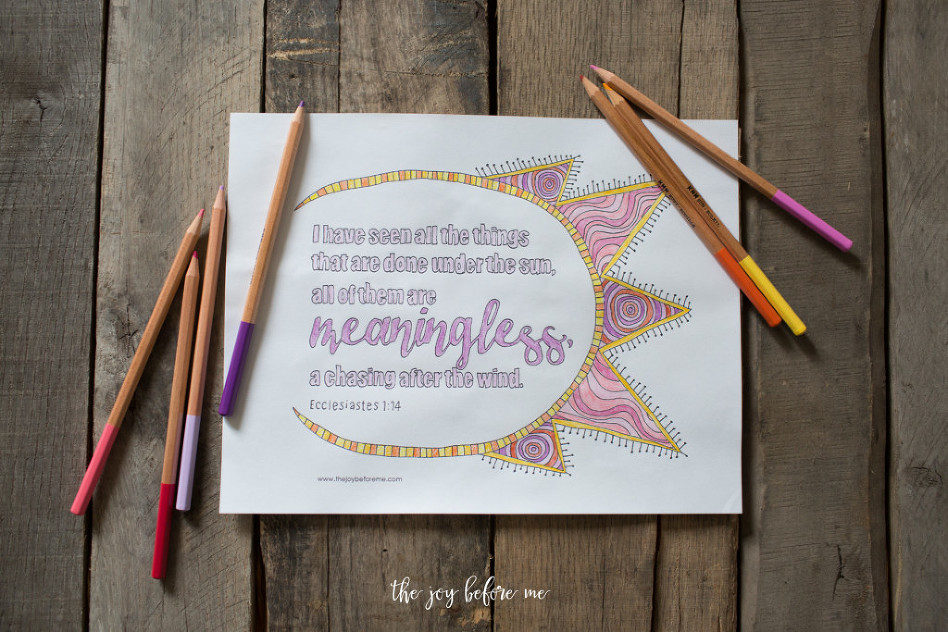 I have seen all the things
that are done under the sun,
all of them are
meaningless,
a chasing after the wind.
Ecclesiastes 1:14
www.thejoybeforeme.com
the joy before me